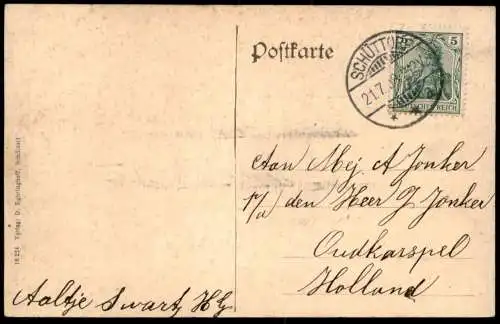 Postkarte
SCHÜTTORF
21.7.
5
DEUTSCHES REICH
Aan Mej A Jonker
p/a den Heer J Jonker
Oudkarspel
Holland
Aaltje Swart, Hlg
18 254 Verlag: D.